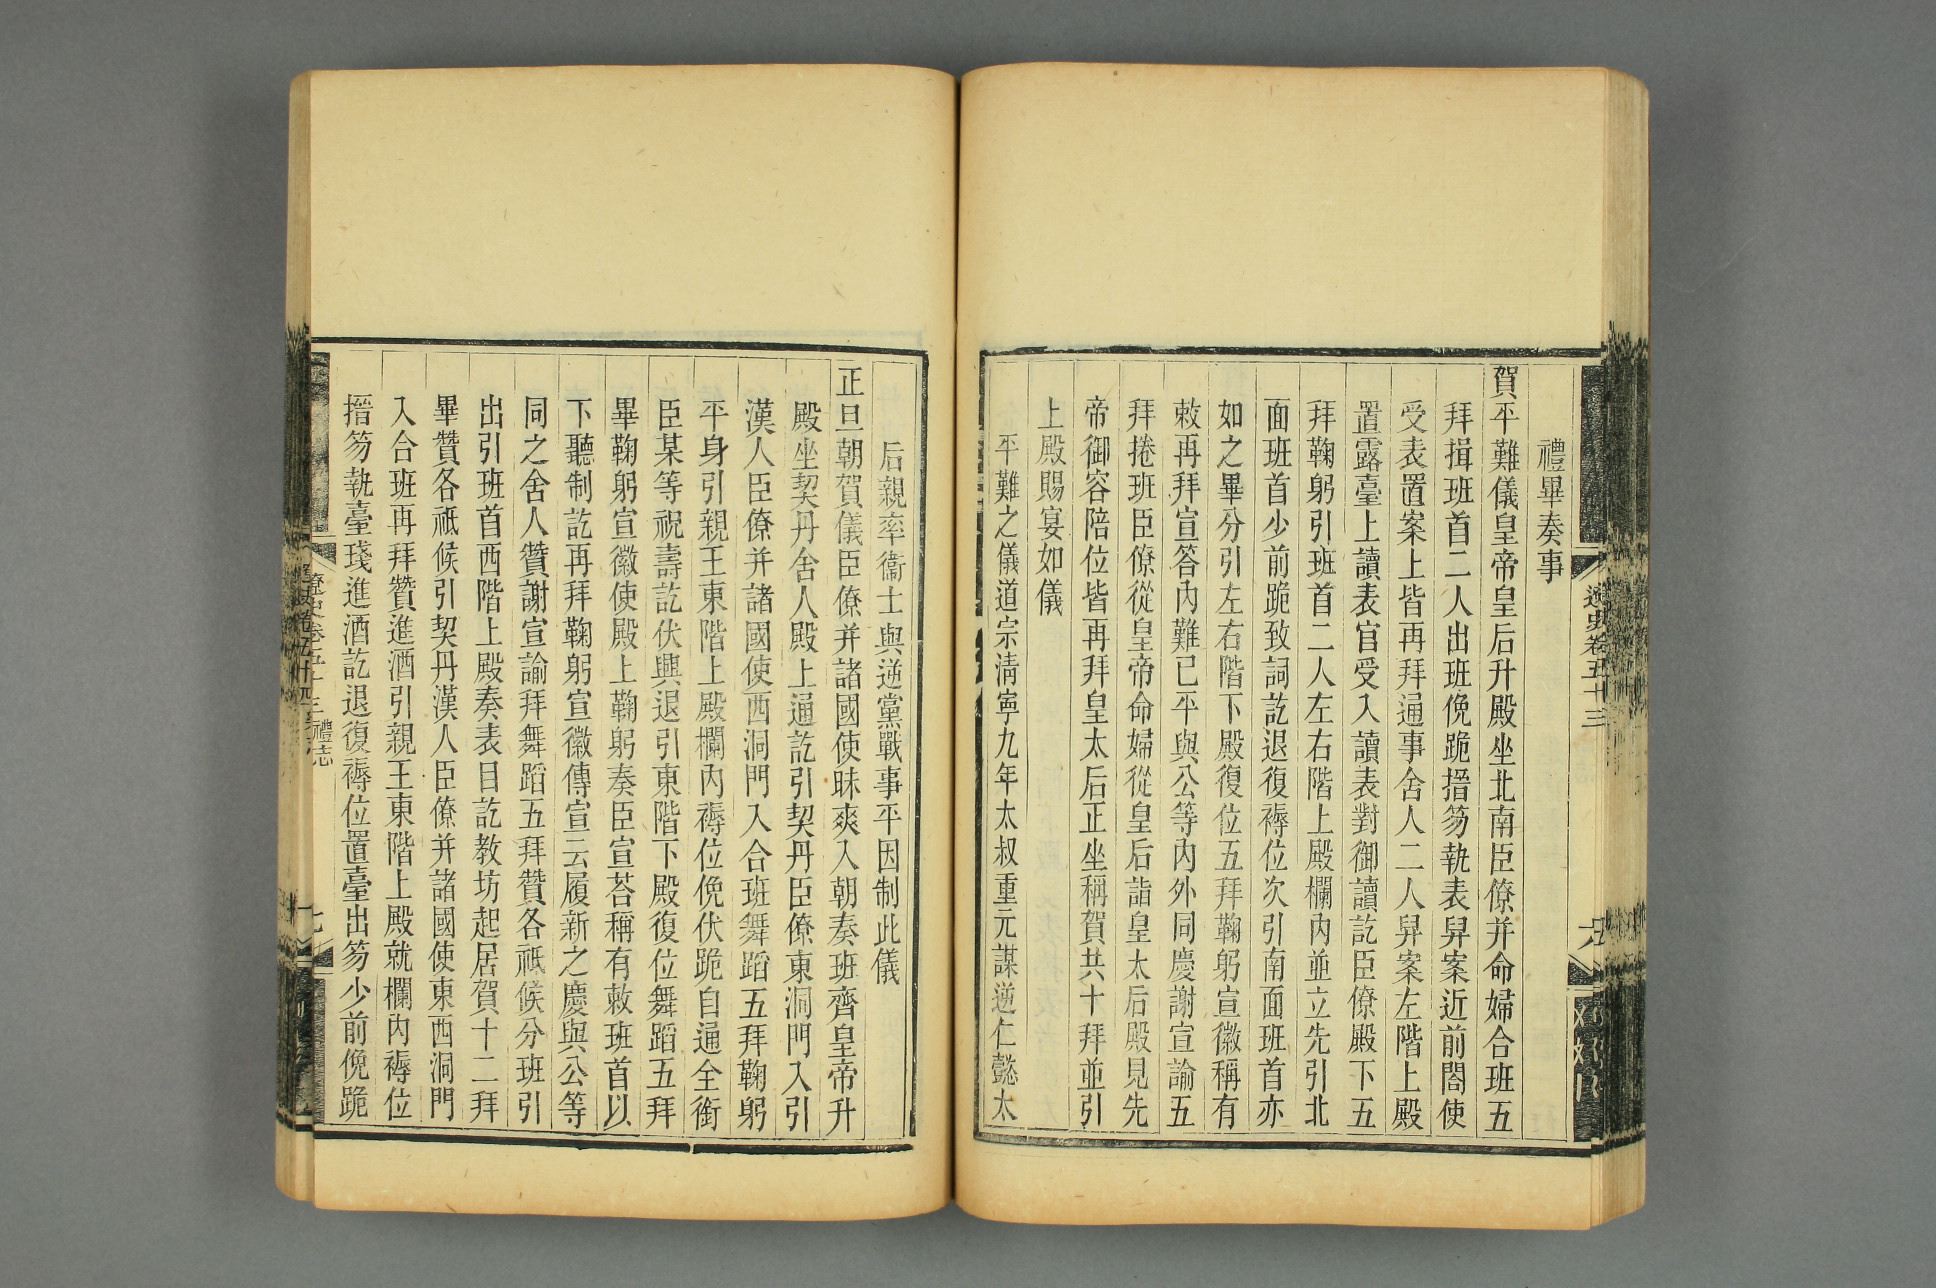 禮畢奏事
賀平難儀皇帝皇后升殿坐北南臣僚并命婦合班五
拜揖班首二人出班俛跪搢笏執表舁案近前閤使
受表置案上皆再拜通事舍人二人舁案左階上殿
置露臺上讀表官受入讀表對御讀訖臣僚殿下五
拜鞠躬引班首二人左右階上殿欄內並立先引北
面班首少前跪致詞訖退復褥位次引南面班首亦
如之畢分引左右階下殿復位五拜鞠躬宣徽稱有
敕再拜宣答內難已平與公等內外同慶謝宣諭五
拜捲班臣僚從皇帝命婦從皇后詣皇太后殿見先
帝御容陪位皆再拜皇太后正坐稱賀共十拜並引
上殿賜宴如儀
平難之儀道宗淸寧九年太叔重元謀逆仁懿太
后親率衞士與逆黨戰事平因制此儀
正旦朝賀儀臣僚并諸國使昧爽入朝奏班齊皇帝升
殿坐契丹舍人殿上通訖引契丹臣僚東洞門入引
漢人臣僚并諸國使西洞門入合班舞蹈五拜鞠躬
平身引親王東階上殿欄內褥位俛伏跪自通全銜
臣某等祝壽訖伏興退引東階下殿復位舞蹈五拜
畢鞠躬宣徽使殿上鞠躬奏臣宣荅稱有敕班首以
下聽制訖再拜鞠躬宣徽傳宣云履新之慶與公等
同之舍人贊謝宣諭拜舞蹈五拜贊各祗候分班引
出引班首西階上殿奏表目訖教坊起居賀十二拜
畢贊各祗候引契丹漢人臣僚并諸國使東西洞門
入合班再拜贊進酒引親王東階上殿就欄內褥位
搢笏執臺琖進酒訖退復褥位置臺出笏少前俛跪
遼史卷五十三
六
遼史卷五十三 禮志
七